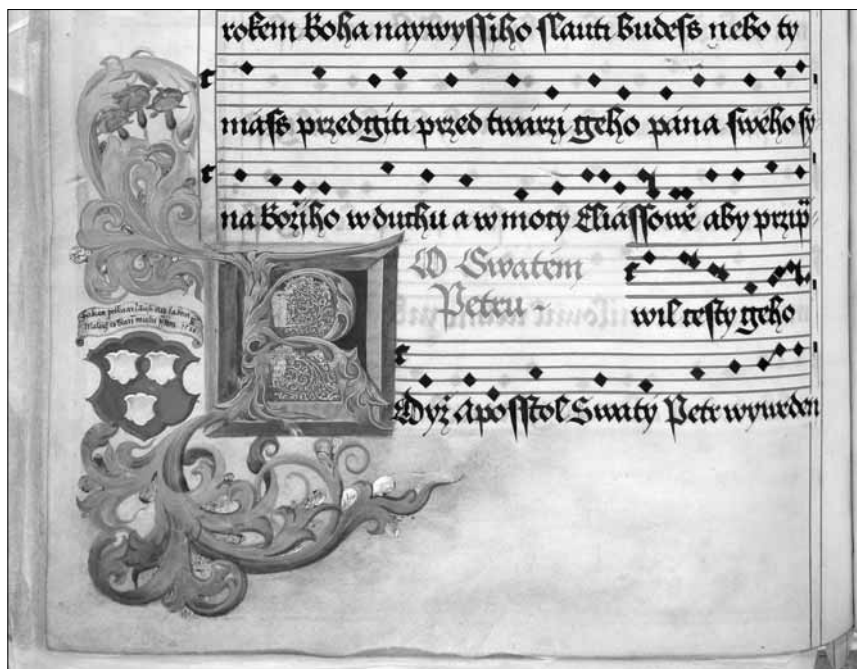 rokem Boha naywyssiho slauti budess nebo ty
mass przedgiti przed twarzi geho pana sweho sy
na božiho w duchu a w mocy Eliassowě aby przip̄
O Swatem
Petru
wil cesty geho
K
Dyž Aposstol Swatý Petr wyweden